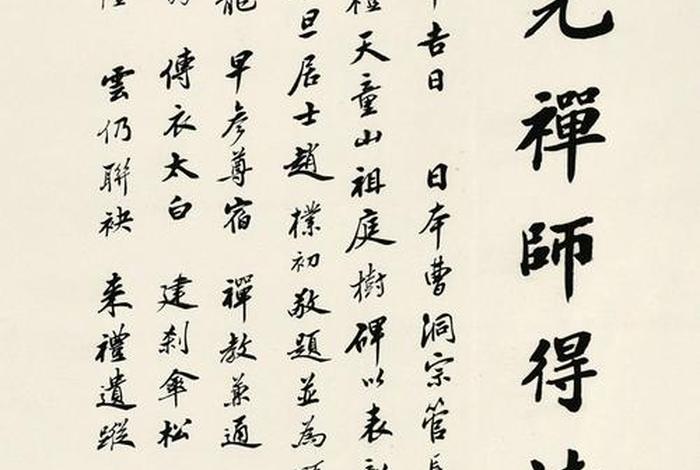 元禪師得
吉日 日本曹洞宗管長
禮天童山祖庭樹碑以表
旦居士趙樸初敬題並為
龍 早參尊宿 禪教兼通
傳衣太白 建刹傘松
雲仍聯袂 来禮遺蹤